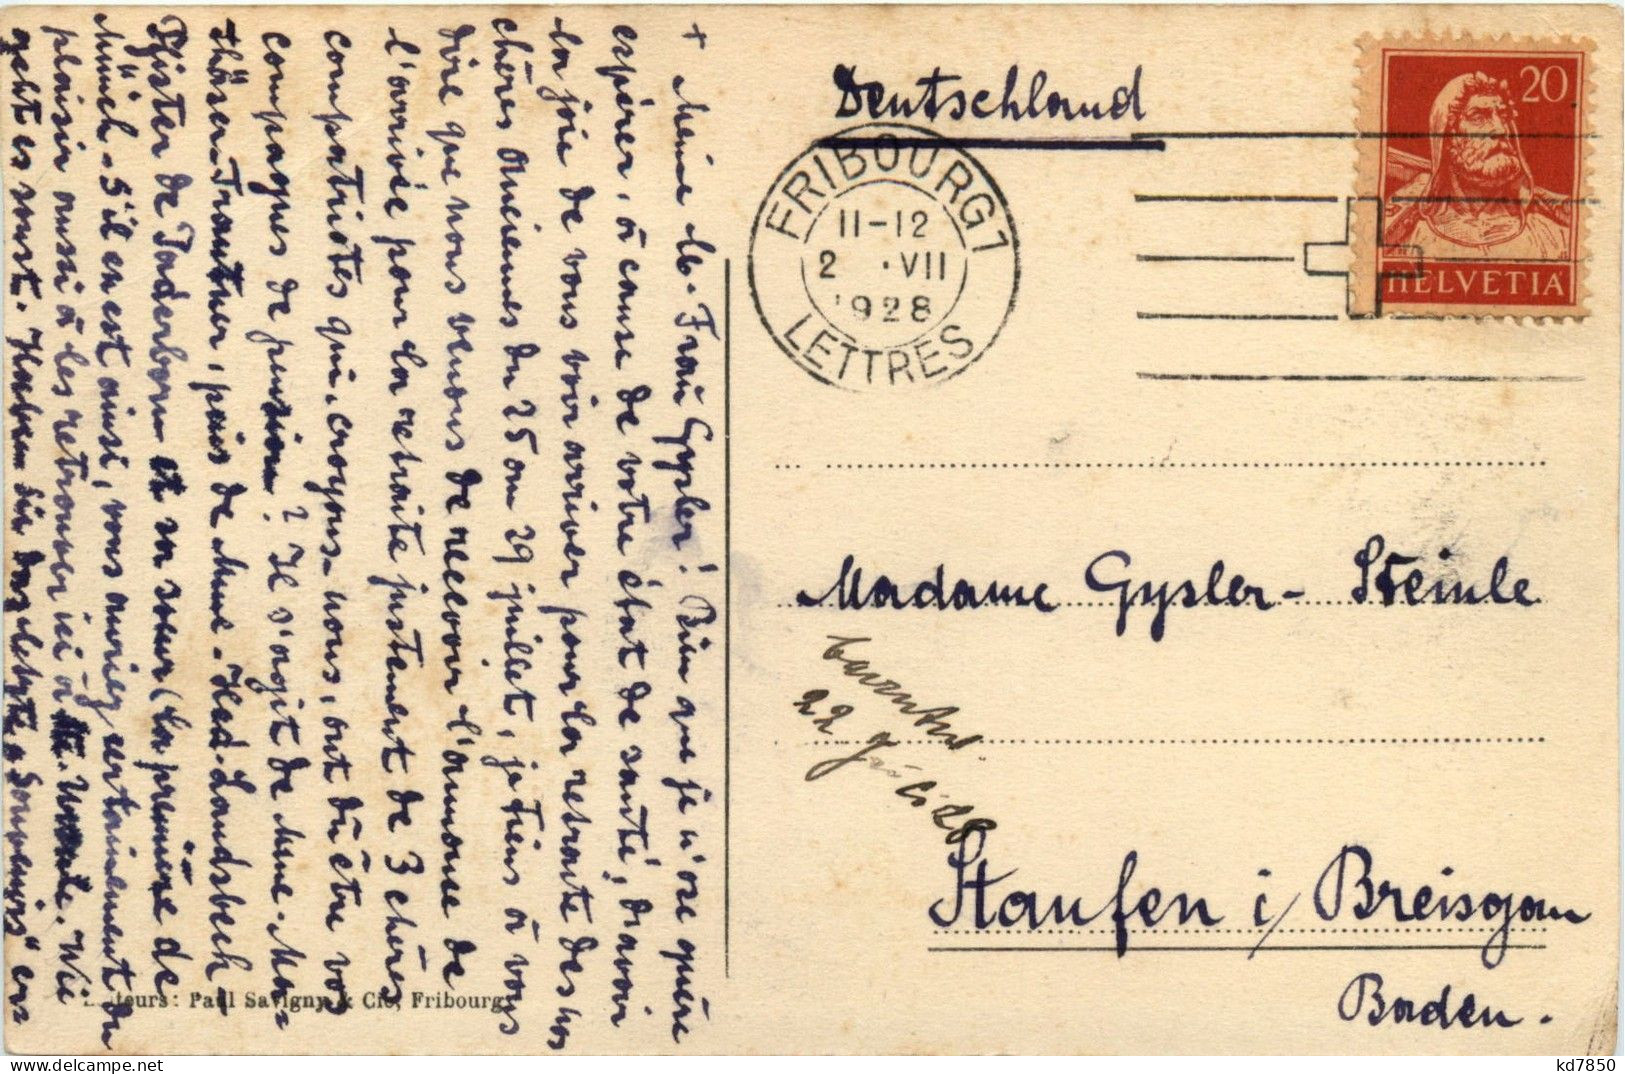 + Meine lb. Frau Gysler! Bien que je n'ose guère
espérer, à cause de votre état de santé, d'avoir
la joie de vous voir arriver pour la retraite des
chères Anciennes du 25 au 29 juillet, je tiens à vous
dire que nous venons de recevoir l'annonce de
l'arrivée pour la retraite justement de 3 chères
compatriotes qui, croyons-nous, ont dû être vos
compagnes de pension? Il s'agit de Mme. Marx
Thöser-Trautner, puis de Mme. Hed. Landsbeck-
Pfister de Paderborn et sa sœur (la première de
Münch. S'il en est ainsi, vous auriez certainement du
plaisir aussi à les retrouver ici à Wie
geht es sonst. Haben Sie das letzte „Souvenirs" erh
Deutschland
FRIBOURG 1
11-12
2 . VII
1928
LETTRES
20
HELVETIA
Madame Gysler-Steinle
22
Staufen i/Breisgau
Baden.
teurs: Paul Savigny & Cie, Fribourg.
kd7850